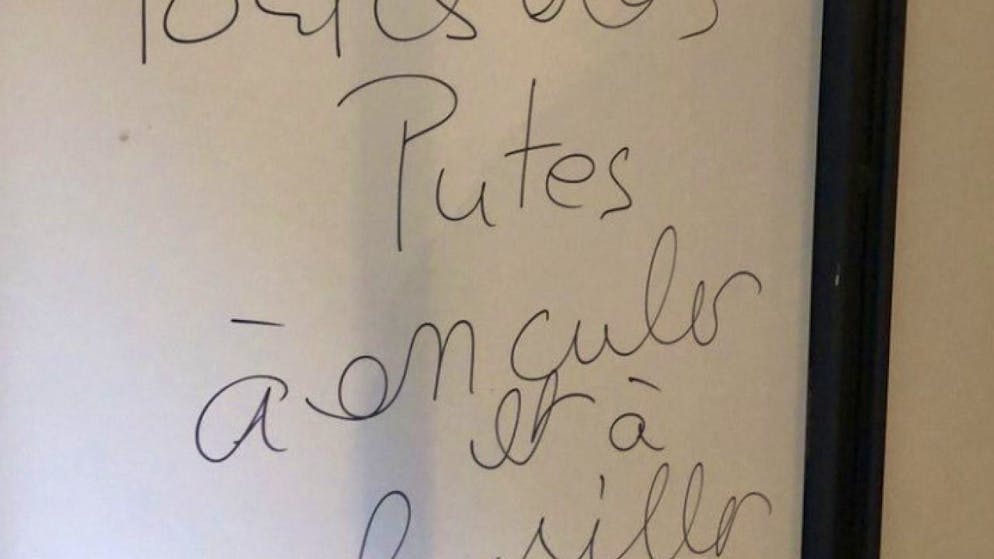 Toutes des
Putes
à enculer
et à